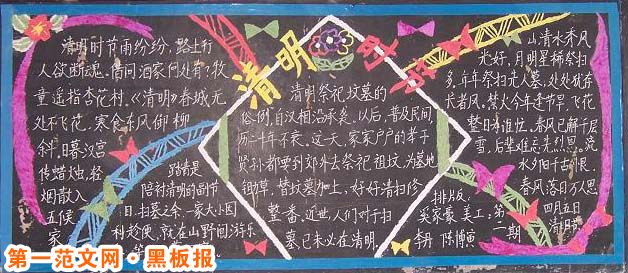 清明
清明时节雨纷纷,路上行
人欲断魂。借问酒家何处有?牧
童遥指杏花村。《清明》春城无
处不飞花,寒食东风御柳
斜,日暮汉宫
传蜡烛,轻
烟散入
五侯
家
踏青是
陪衬清明的副节
目.扫墓之余,一家大小图
科趁便,就在山野间游乐
清明祭祀坟墓的
俗例,自汉相沿承矣,以后,普及民间,
历二千年不衰。这一天,家家户户的孝子
贤孙都要到郊外去祭祀祖坟,为墓地
锄草,替扫墓加上,好好清扫修
整一番,近世,人们对于扫
墓,已未必在清明.
山清水秀风
光好,月明星稀祭扫
多,年年祭扫先人墓,处处犹存
长者风。焚火今年逢节早,飞花
整日有谁忙。春风已解千层
雪,后辈难忘先烈恩。
水夕阳千古恨,
春风落日不思
四月五日
清明节
排版及:
吴家豪 美工:第
李丹 陈博寅 一
期
第一范文网·黑板报